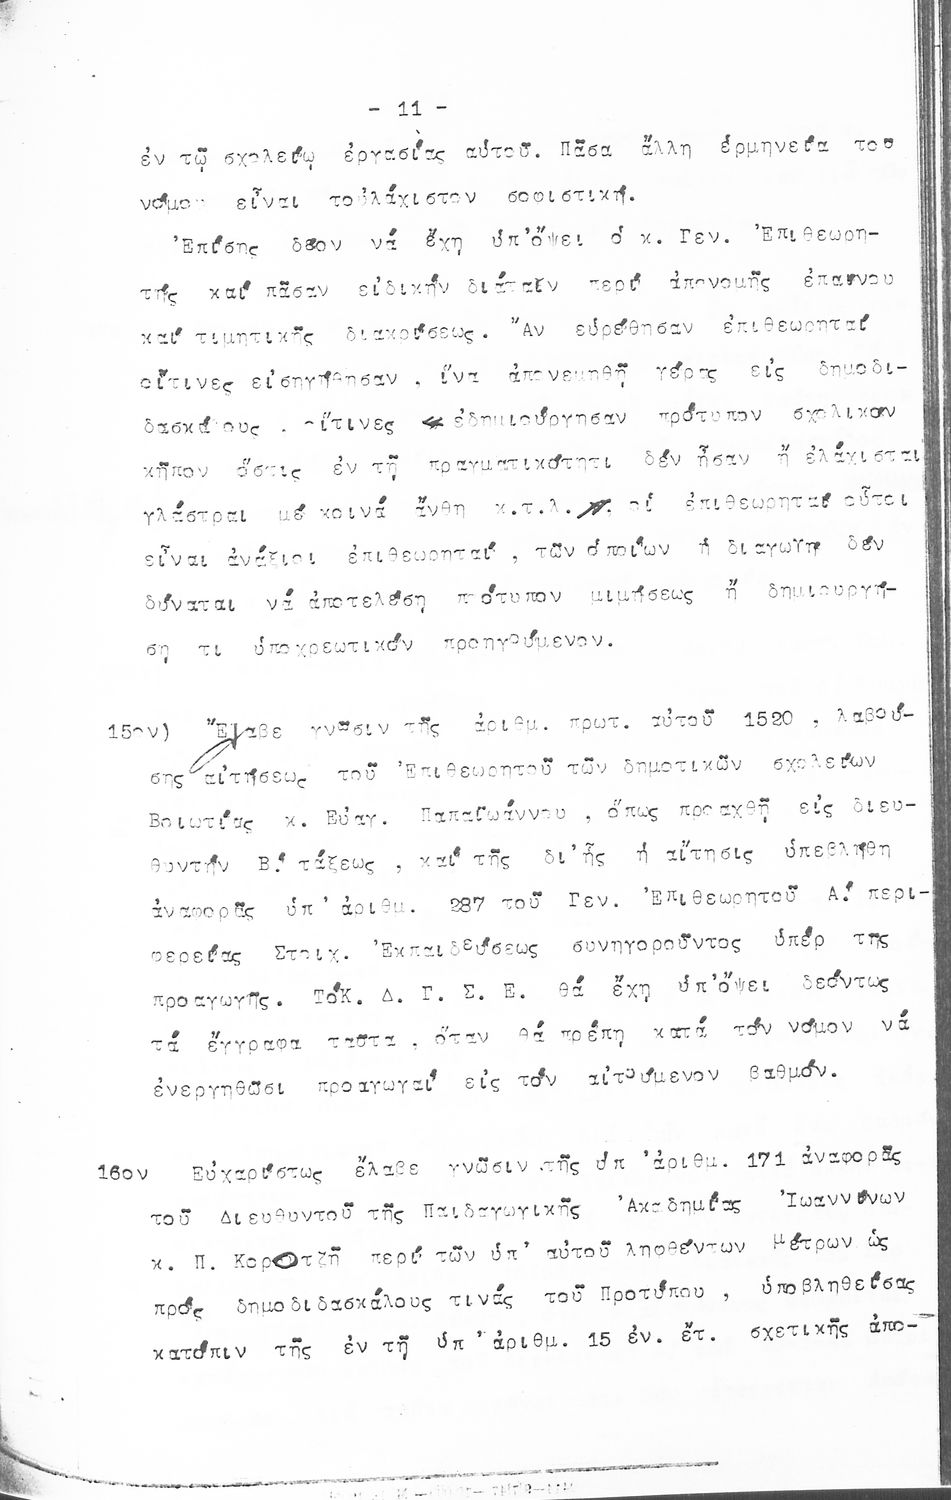 - 11 -
ἐν τῷ σχολείῳ ἐργασίας αὐτοῦ. Πᾶσα ἄλλη ἑρμηνεία τοῦ
νόμου εἶναι τοὐλάχιστον σοφιστική.
Ἐπίσης δέον νά ἔχῃ ὑπ' ὄψει ὁ κ. Γεν. Ἐπιθεωρη-
τής καί πᾶσαν εἰδικήν διάταξιν περί ἀπονομῆς ἐπαίνου
καί τιμητικῆς διακρίσεως. Ἄν εὑρέθησαν ἐπιθεωρηταί
οἵτινες εἰσηγήθησαν, ἵνα ἀπονεμηθῇ γέρας εἰς δημοδι-
δασκάλους, οἵτινες ἐδημιούργησαν πρότυπον σχολικόν
κῆπον ὅστις ἐν τῇ πραγματικότητι δέν ἦσαν ἤ ἐλάχισται
γλάστραι μέ κοινά ἄνθη κ.τ.λ., οἱ ἐπιθεωρηταί οὗτοι
εἶναι ἀνάξιοι ἐπιθεωρηταί, τῶν ὁποίων ἡ διαγωγή δέν
δύναται νά ἀποτελέσῃ πρότυπον μιμήσεως ἤ δημιουργή-
σῃ τι ὑποχρεωτικόν προηγούμενον.
15ον) Ἔλαβε γνῶσιν τῆς ἀριθμ. πρωτ. αὐτοῦ 1520, λαβού-
σης αἰτήσεως τοῦ Ἐπιθεωρητοῦ τῶν δημοτικῶν σχολείων
Βοιωτίας κ. Εὐαγ. Παπαϊωάννου, ὅπως προαχθῇ εἰς διευ-
θυντήν Β.' τάξεως, καί τῆς δι' ἧς ἡ αἴτησις ὑπεβλήθη
ἀναφορᾶς ὑπ' ἀριθμ. 287 τοῦ Γεν. Ἐπιθεωρητοῦ Α.' περι-
φερείας Στοιχ. Ἐκπαιδεύσεως συνηγοροῦντος ὑπέρ τῆς
προαγωγῆς. ΤόΚ. Δ. Γ. Σ. Ε. θά ἔχῃ ὑπ' ὄψει δεόντως
τά ἔγγραφα ταῦτα, ὅταν θά πρέπῃ κατά τόν νόμον νά
ἐνεργηθῶσι προαγωγαί εἰς τόν αἰτούμενον βαθμόν.
16ον Εὐχαρίστως ἔλαβε γνῶσιν τῆς ὑπ' ἀριθμ. 171 ἀναφορᾶς
τοῦ Διευθυντοῦ τῆς Παιδαγωγικῆς Ἀκαδημίας Ἰωαννίνων
κ. Π. Κορ τζῆ περί τῶν ὑπ' αὐτοῦ ληφθέντων μέτρων ὡς
πρός δημοδιδασκάλους τινάς τοῦ Προτύπου, ὑποβληθείσας
κατόπιν τῆς ἐν τῇ ὑπ' ἀριθμ. 15 ἐν. ἔτ. σχετικῆς ἀπο-